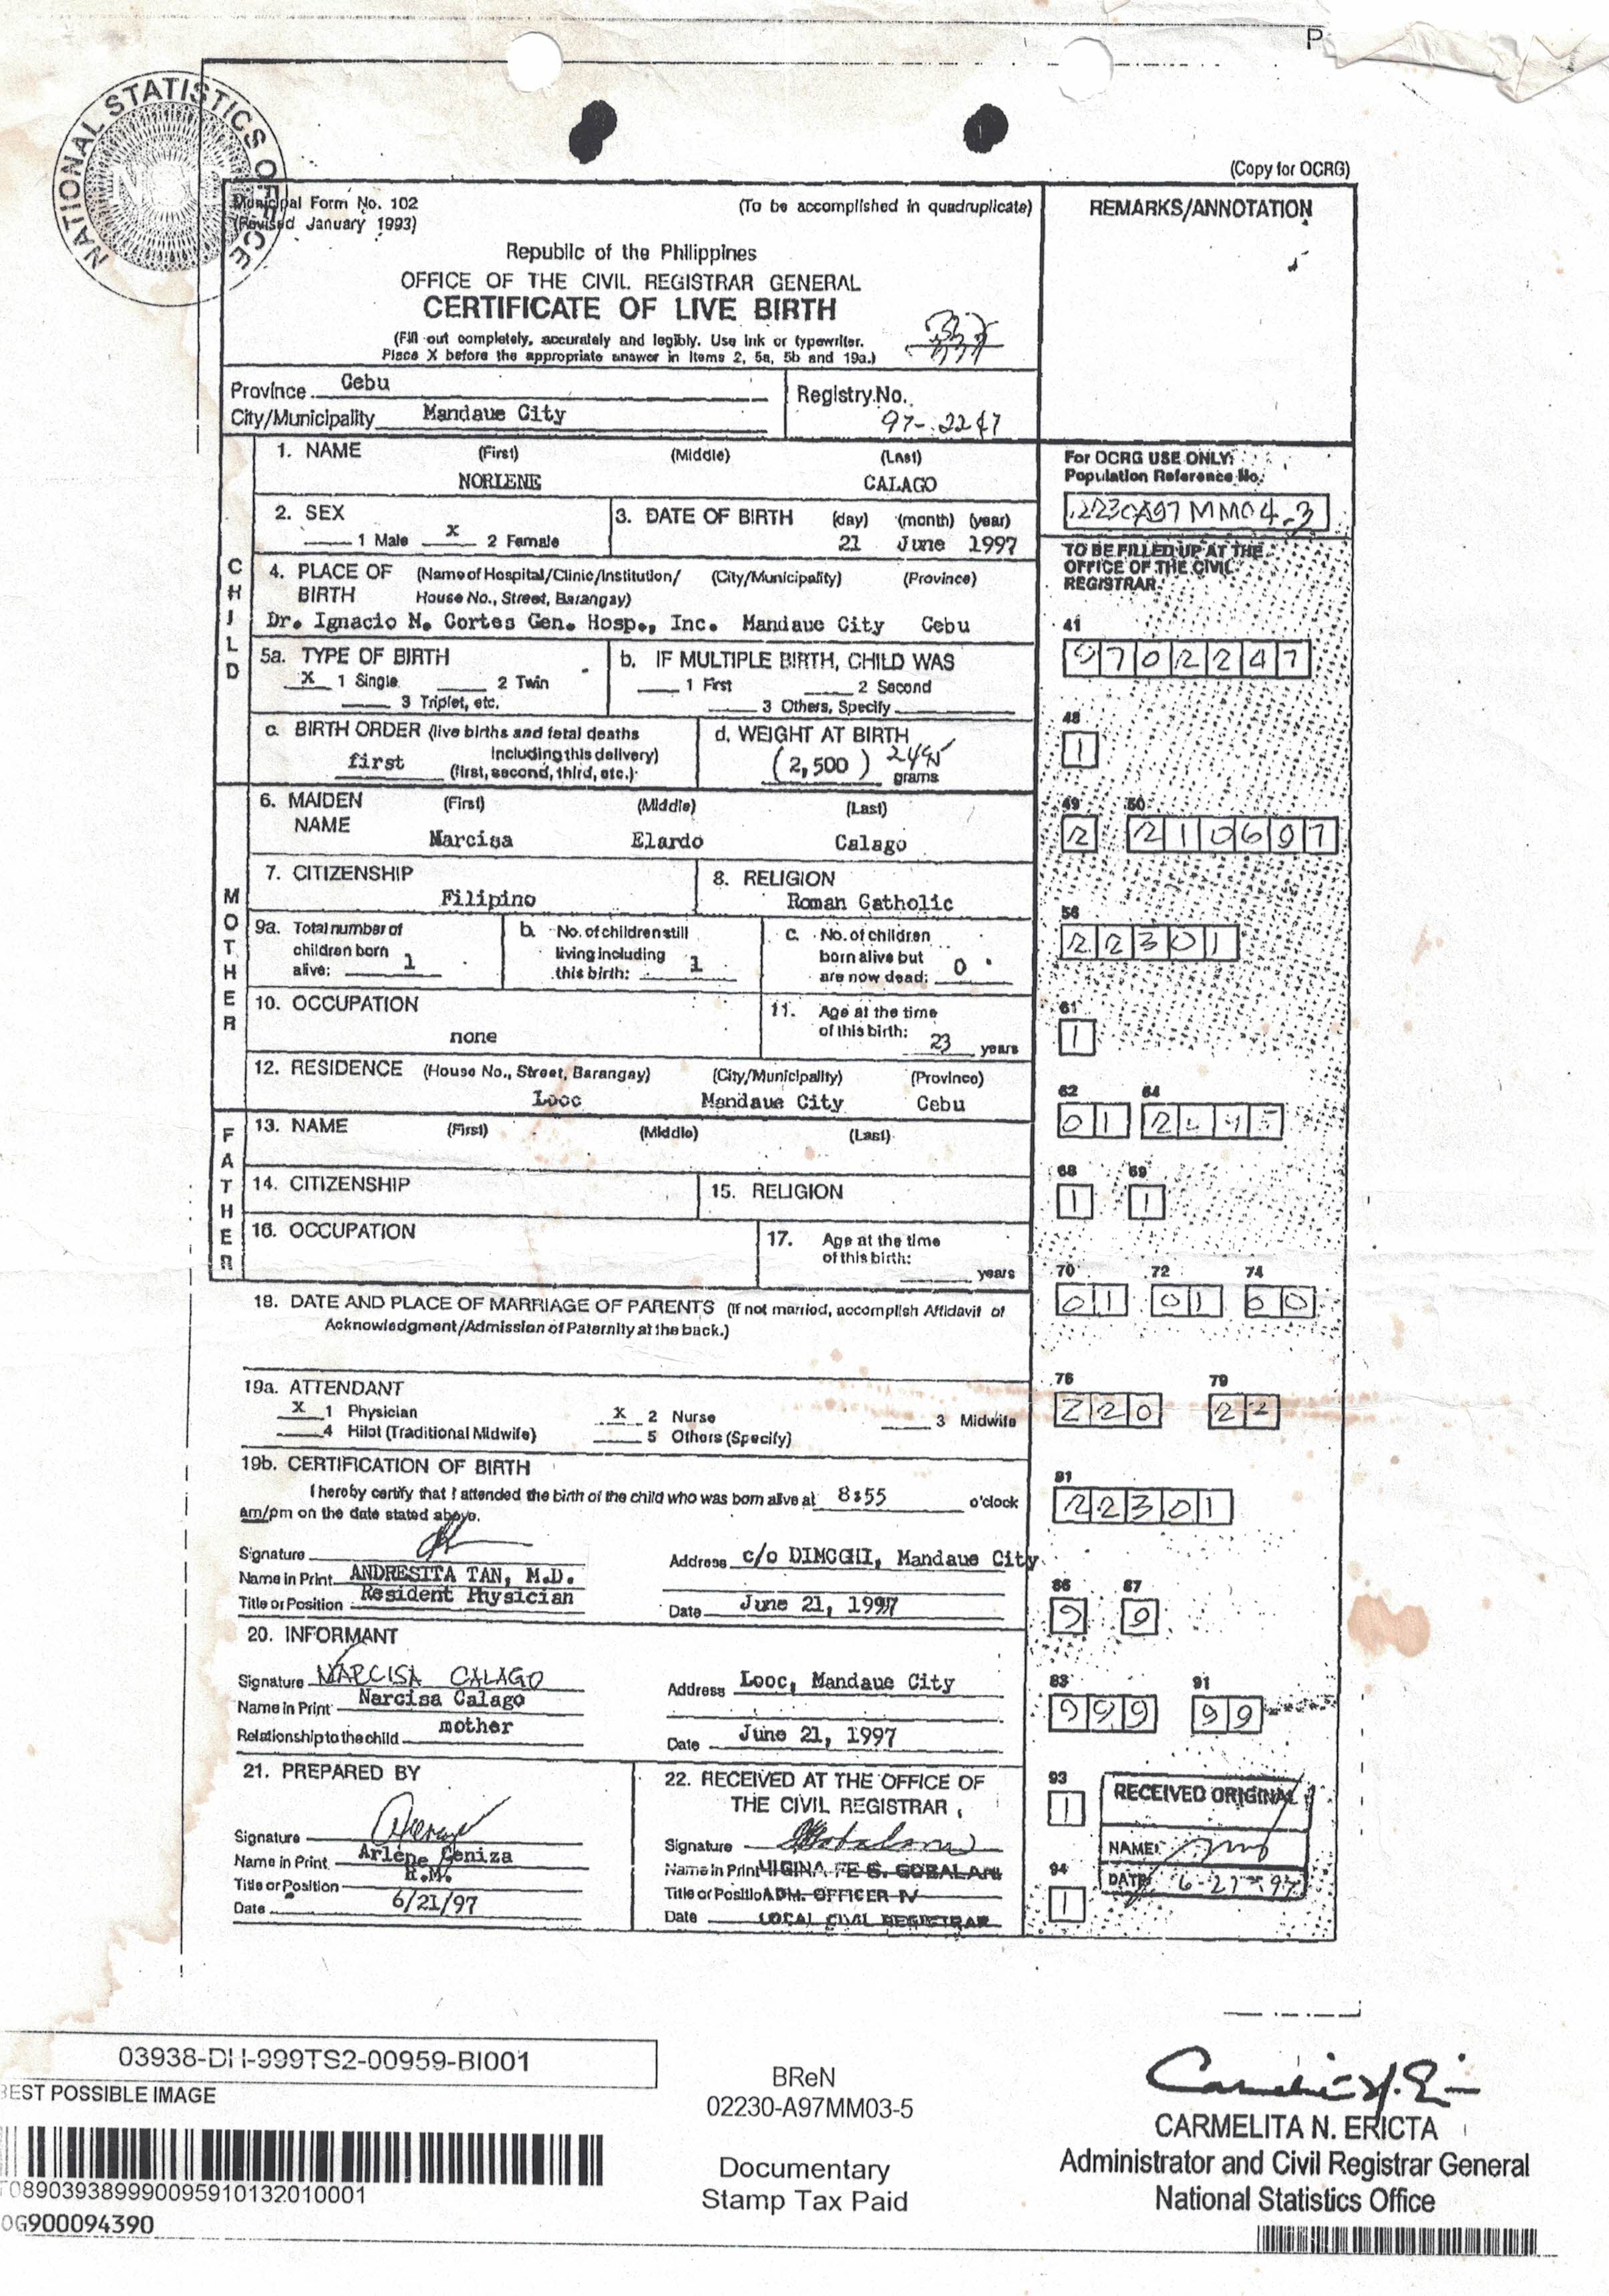 P
NATIONAL STATISTICS OFFICE
(Copy for OCRG)
Municipal Form No. 102
(Revised January 1993)
(To be accomplished in quadruplicate)
REMARKS/ANNOTATION
Republic of the Philippines
OFFICE OF THE CIVIL REGISTRAR GENERAL
CERTIFICATE OF LIVE BIRTH
(Fill out completely, accurately and legibly. Use ink or typewriter.
Place X before the appropriate answer in Items 2, 5a, 5b and 19a.)
Province Cebu
City/Municipality Mandaue City
Registry No.
97-2247
CHILD
1. NAME (First) (Middle) (Last)
NORLENE CALAGO
For OCRG USE ONLY:
Population Reference No.
2. SEX
1 Male X 2 Female
3. DATE OF BIRTH (day) (month) (year)
21 June 1997
TO BE FILLED UP AT THE
OFFICE OF THE CIVIL
REGISTRAR
4. PLACE OF BIRTH (Name of Hospital/Clinic/Institution/ (City/Municipality) (Province)
House No., Street, Barangay)
Dr. Ignacio M. Cortes Gen. Hosp., Inc. Mandaue City Cebu
41
9702247
5a. TYPE OF BIRTH
X 1 Single 2 Twin
3 Triplet, etc.
b. IF MULTIPLE BIRTH, CHILD WAS
1 First 2 Second
3 Others, Specify
c. BIRTH ORDER (live births and fetal deaths
including this delivery)
first (first, second, third, etc.)
d. WEIGHT AT BIRTH
(2,500) 2495 grams
48
1
MOTHER
6. MAIDEN NAME (First) (Middle) (Last)
Narcisa Elardo Calago
49 50
2 210697
7. CITIZENSHIP
Filipino
8. RELIGION
Roman Catholic
56
22301
9a. Total number of
children born
alive: 1
b. No. of children still
living including
this birth: 1
c. No. of children
born alive but
are now dead: 0
10. OCCUPATION
none
11. Age at the time
of this birth:
23 years
61
1
12. RESIDENCE (House No., Street, Barangay) (City/Municipality) (Province)
Looc Mandaue City Cebu
62 64
01
FATHER
13. NAME (First) (Middle) (Last)
14. CITIZENSHIP
15. RELIGION
68 69
1 1
16. OCCUPATION
17. Age at the time
of this birth:
years
70 72 74
01 01 00
18. DATE AND PLACE OF MARRIAGE OF PARENTS (If not married, accomplish Affidavit of
Acknowledgment/Admission of Paternity at the back.)
19a. ATTENDANT
X 1 Physician X 2 Nurse 3 Midwife
4 Hilot (Traditional Midwife) 5 Others (Specify)
76 79
220 22
19b. CERTIFICATION OF BIRTH
I hereby certify that I attended the birth of the child who was born alive at 8:55 o'clock
am/pm on the date stated above.
81
22301
Signature
Name in Print ANDRESITA TAN, M.D.
Title or Position Resident Physician
Address c/o DIMCGHI, Mandaue City
Date June 21, 1997
86 87
9 9
20. INFORMANT
Signature NARCISA CALAGO
Name in Print Narcisa Calago
Relationship to the child mother
Address Looc, Mandaue City
Date June 21, 1997
88 91
999 99
21. PREPARED BY
Signature
Name in Print Arlene Ceniza
Title or Position R.M.
Date 6/21/97
22. RECEIVED AT THE OFFICE OF
THE CIVIL REGISTRAR
Signature
Name in Print HIGINA FE G. GOBALANI
Title or Position ADM. OFFICER IV
Date LOCAL CIVIL REGISTRAR
93
1
94
1
RECEIVED ORIGINAL
NAME:
DATE: 6-27-97
03938-DH-999TS2-00959-BI001
BEST POSSIBLE IMAGE
T08903938999009591013201​0001
OG900094390
BReN
02230-A97MM03-5
Documentary
Stamp Tax Paid
CARMELITA N. ERICTA
Administrator and Civil Registrar General
National Statistics Office